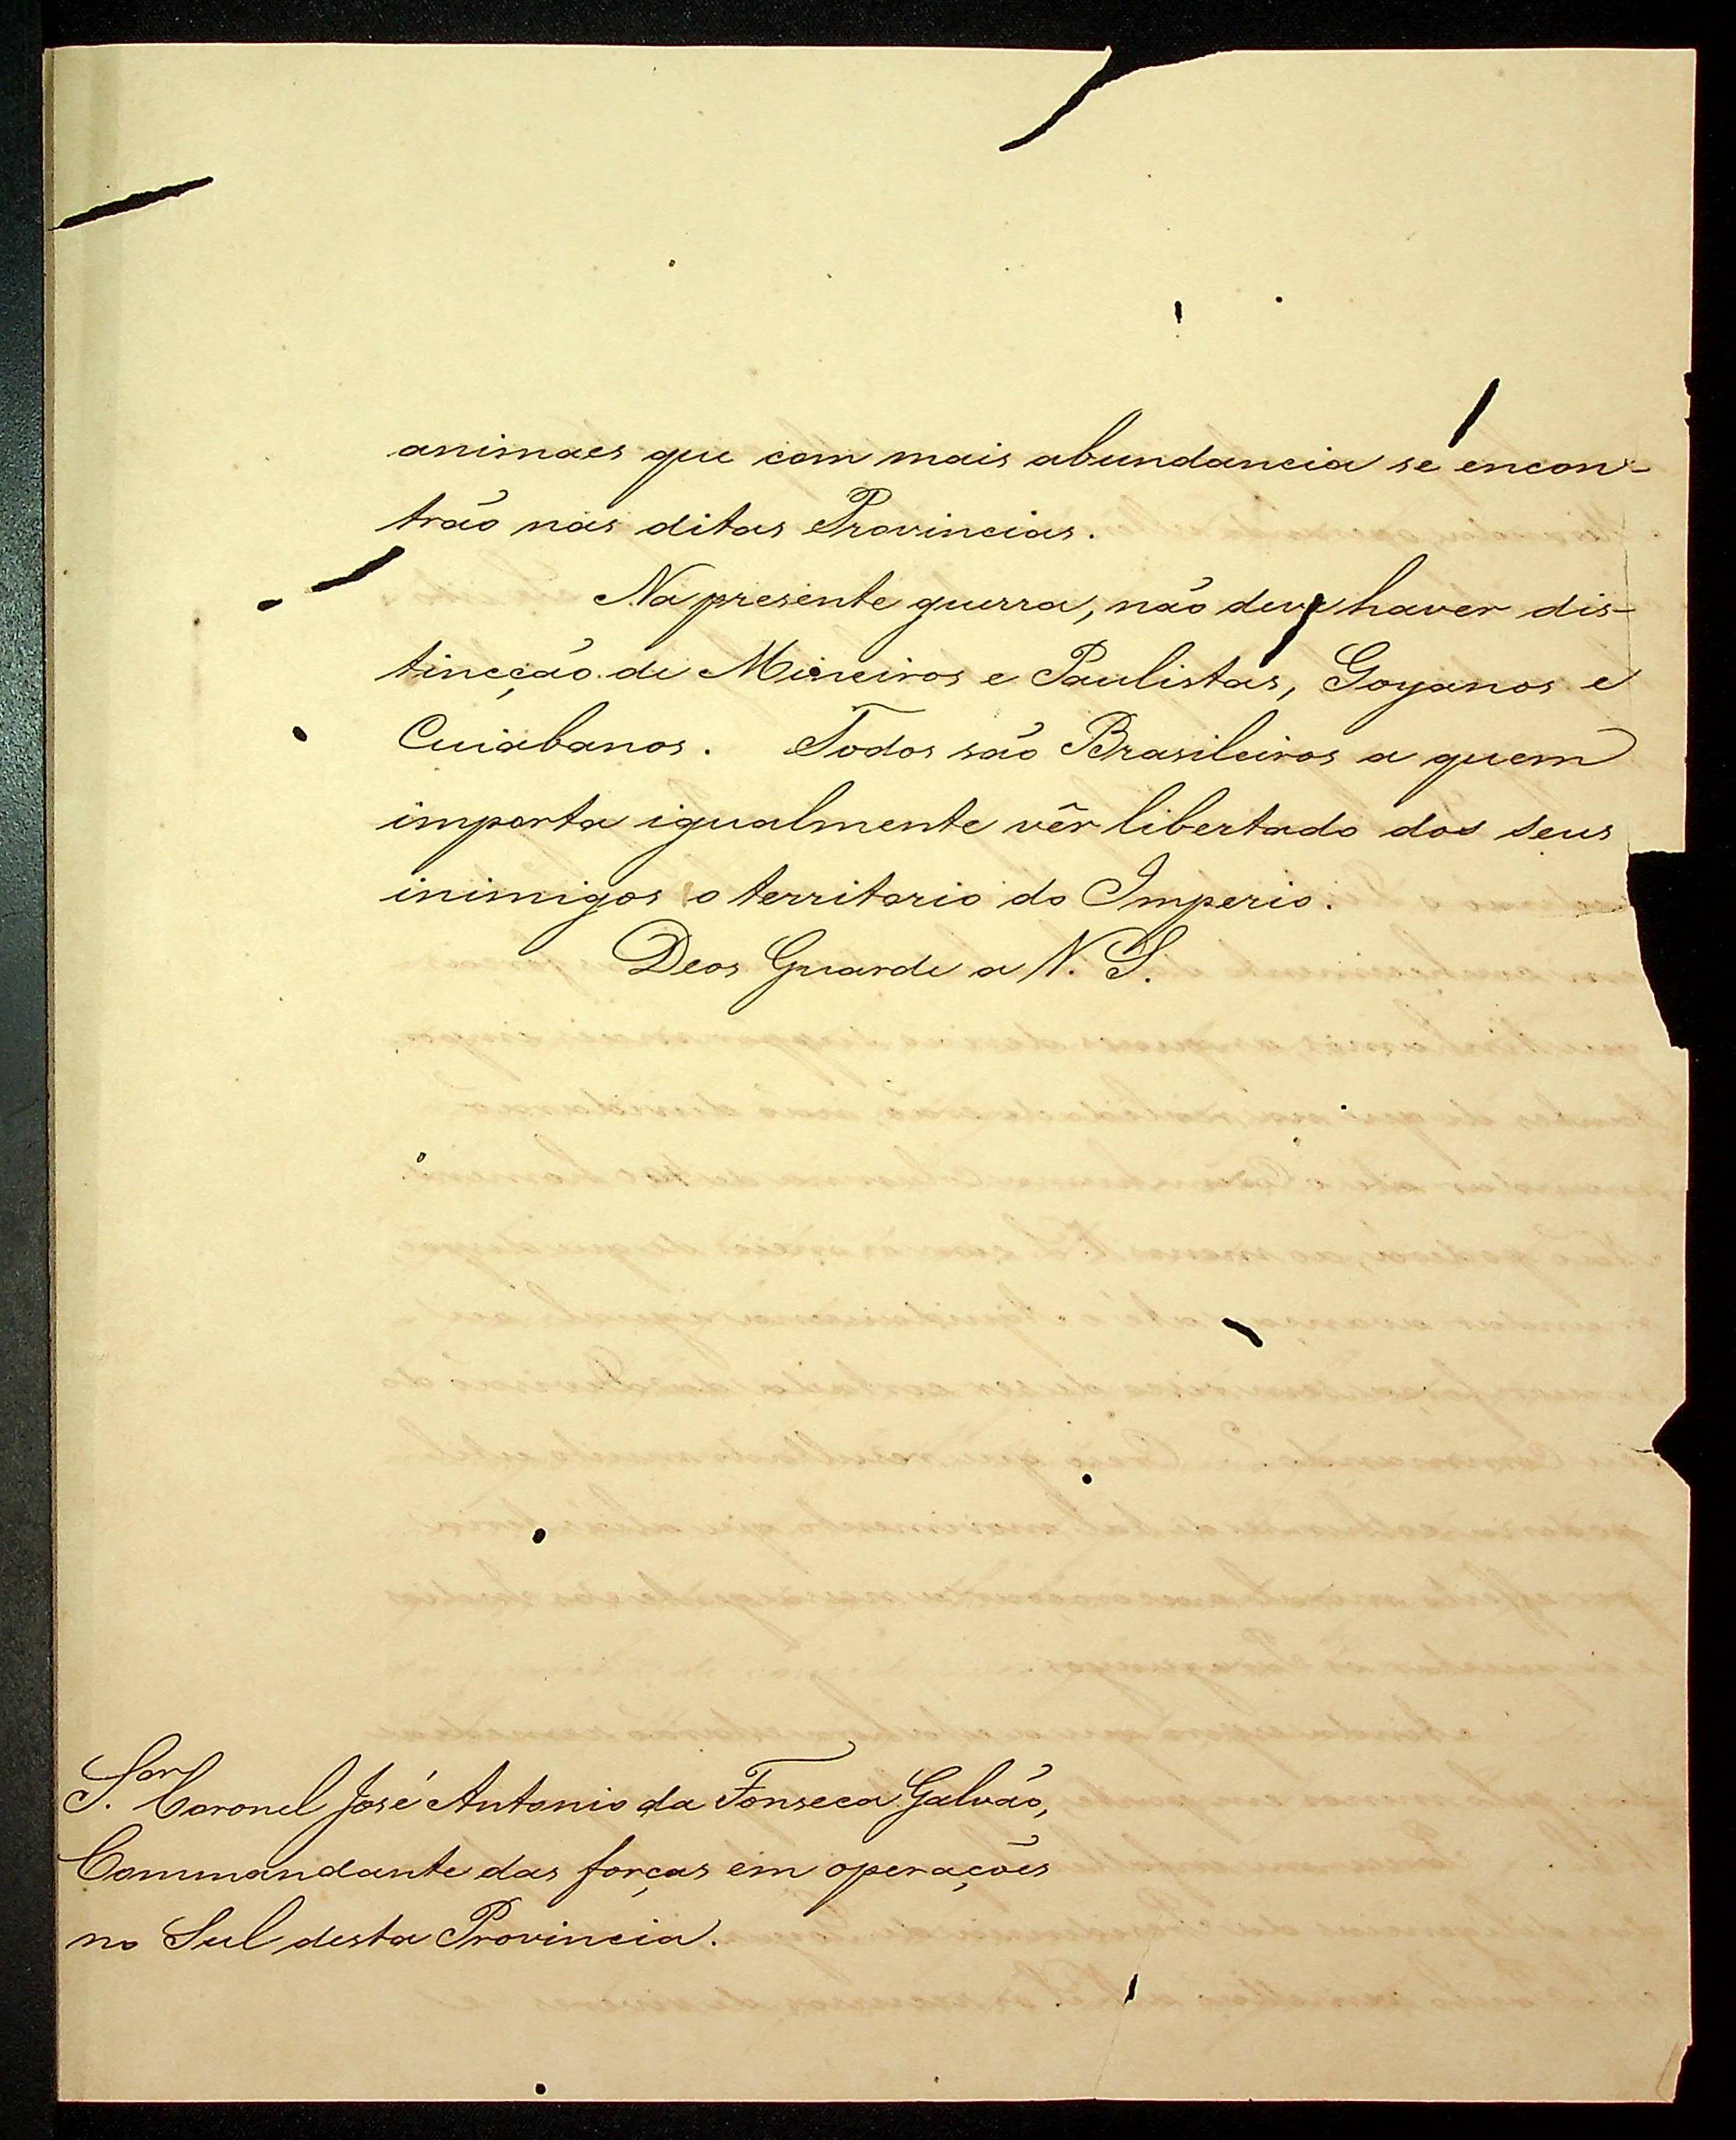 animaes que com mais abundancia se encon-
trão nas ditas Provincias.
Na presente guerra, não deve haver dis-
tincção de Mineiros e Paulistas, Goyanos e
Cuiabanos. Todos são Brasileiros a quem
importa igualmente vêr libertado dos seus
inimigos o territorio do Imperio.
Deos Guarde a V. S.
S.or Coronel José Antonio da Fonseca Galvão,
Commandante das forças em operações
no Sul desta Provincia.